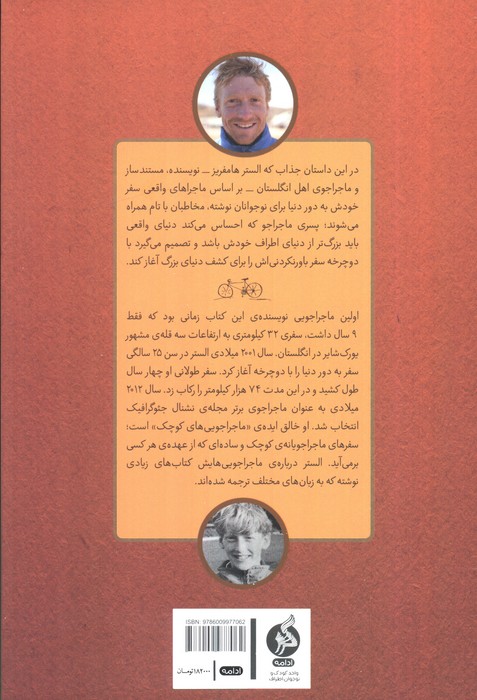 در این داستان جذاب که الستر هامفریز ــ نویسنده، مستندساز
و ماجراجوی اهل انگلستان ــ بر اساس ماجراهای واقعی سفر
خودش به دور دنیا برای نوجوانان نوشته، مخاطبان با تام همراه
می‌شوند؛ پسری ماجراجو که احساس می‌کند دنیای واقعی
باید بزرگ‌تر از دنیای اطراف خودش باشد و تصمیم می‌گیرد با
دوچرخه سفر باورنکردنی‌اش را برای کشف دنیای بزرگ آغاز کند.
اولین ماجراجویی نویسنده‌ی این کتاب زمانی بود که فقط
۹ سال داشت، سفری ۳۲ کیلومتری به ارتفاعات سه قله‌ی مشهور
یورک‌شایر در انگلستان. سال ۲۰۰۱ میلادی الستر در سن ۲۵ سالگی
سفر به دور دنیا را با دوچرخه آغاز کرد. سفر طولانی او چهار سال
طول کشید و در این مدت ۷۴ هزار کیلومتر را رکاب زد. سال ۲۰۱۲
میلادی به عنوان ماجراجوی برتر مجله‌ی نشنال جئوگرافیک
انتخاب شد. او خالق ایده‌ی «ماجراجویی‌های کوچک» است؛
سفرهای ماجراجویانه‌ی کوچک و ساده‌ای که از عهده‌ی هر کسی
برمی‌آید. الستر درباره‌ی ماجراجویی‌هایش کتاب‌های زیادی
نوشته که به زبان‌های مختلف ترجمه شده‌اند.
ISBN: 9786009977062
۱۸۲۰۰۰تومان
ادامه
ادامه
واحد کودک و
نوجوان اطراف